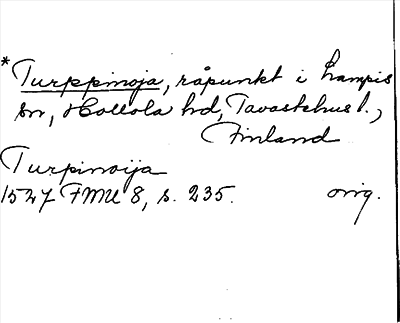 *Turppinoja, råpunkt i Lampis
sn, Hollola hd, Tavastehus l.,
Finland
Turpinoija
1527 FMU 8, s. 235. orig.